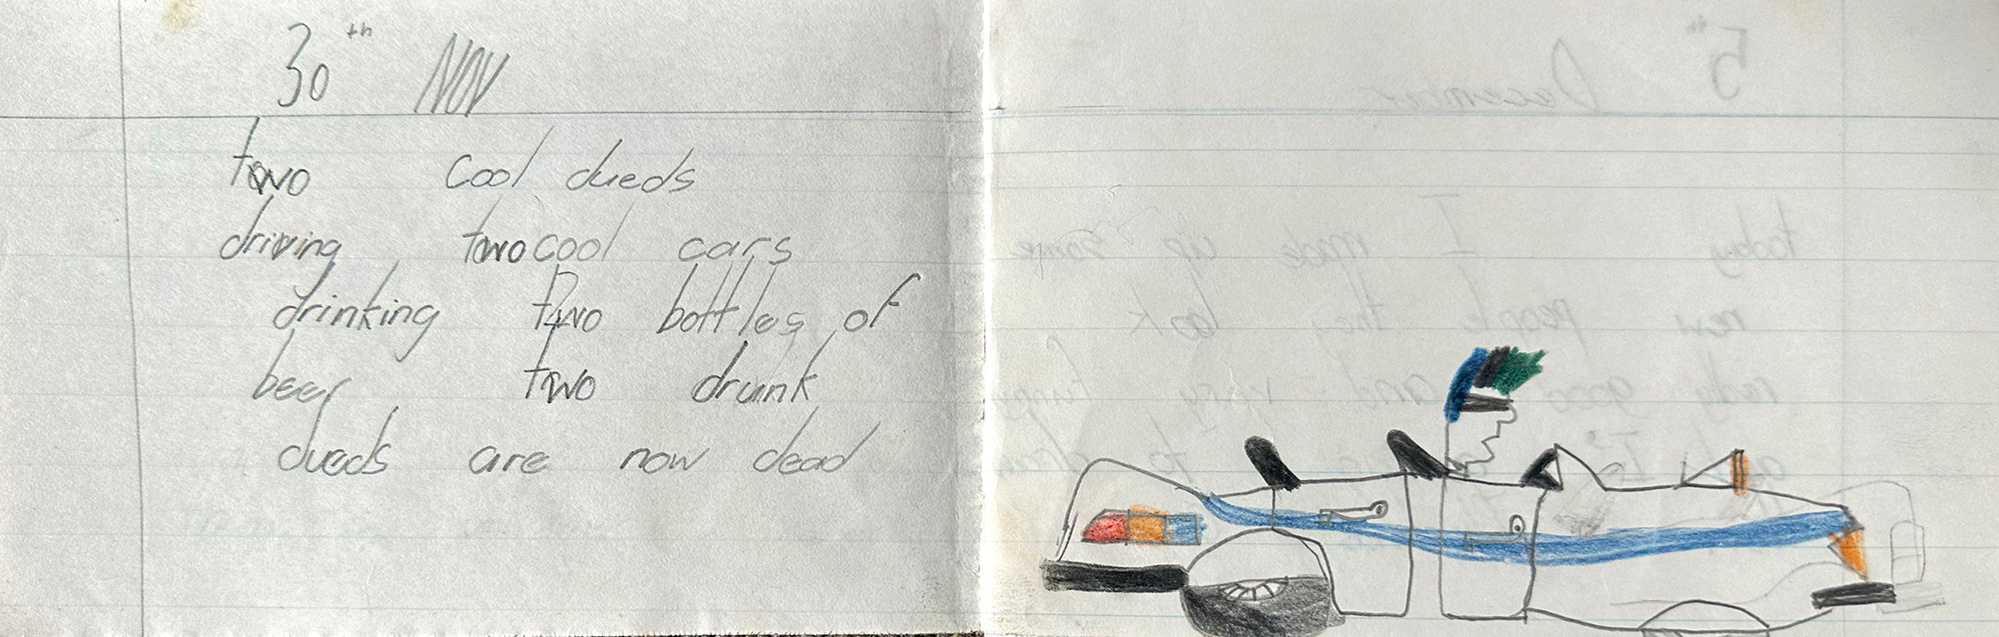 30th NOV
two cool dueds
driving two cool cars
drinking two bottles of
beer two drunk
dueds are now dead
5th December
today I made up some
new people they look
good and very funny